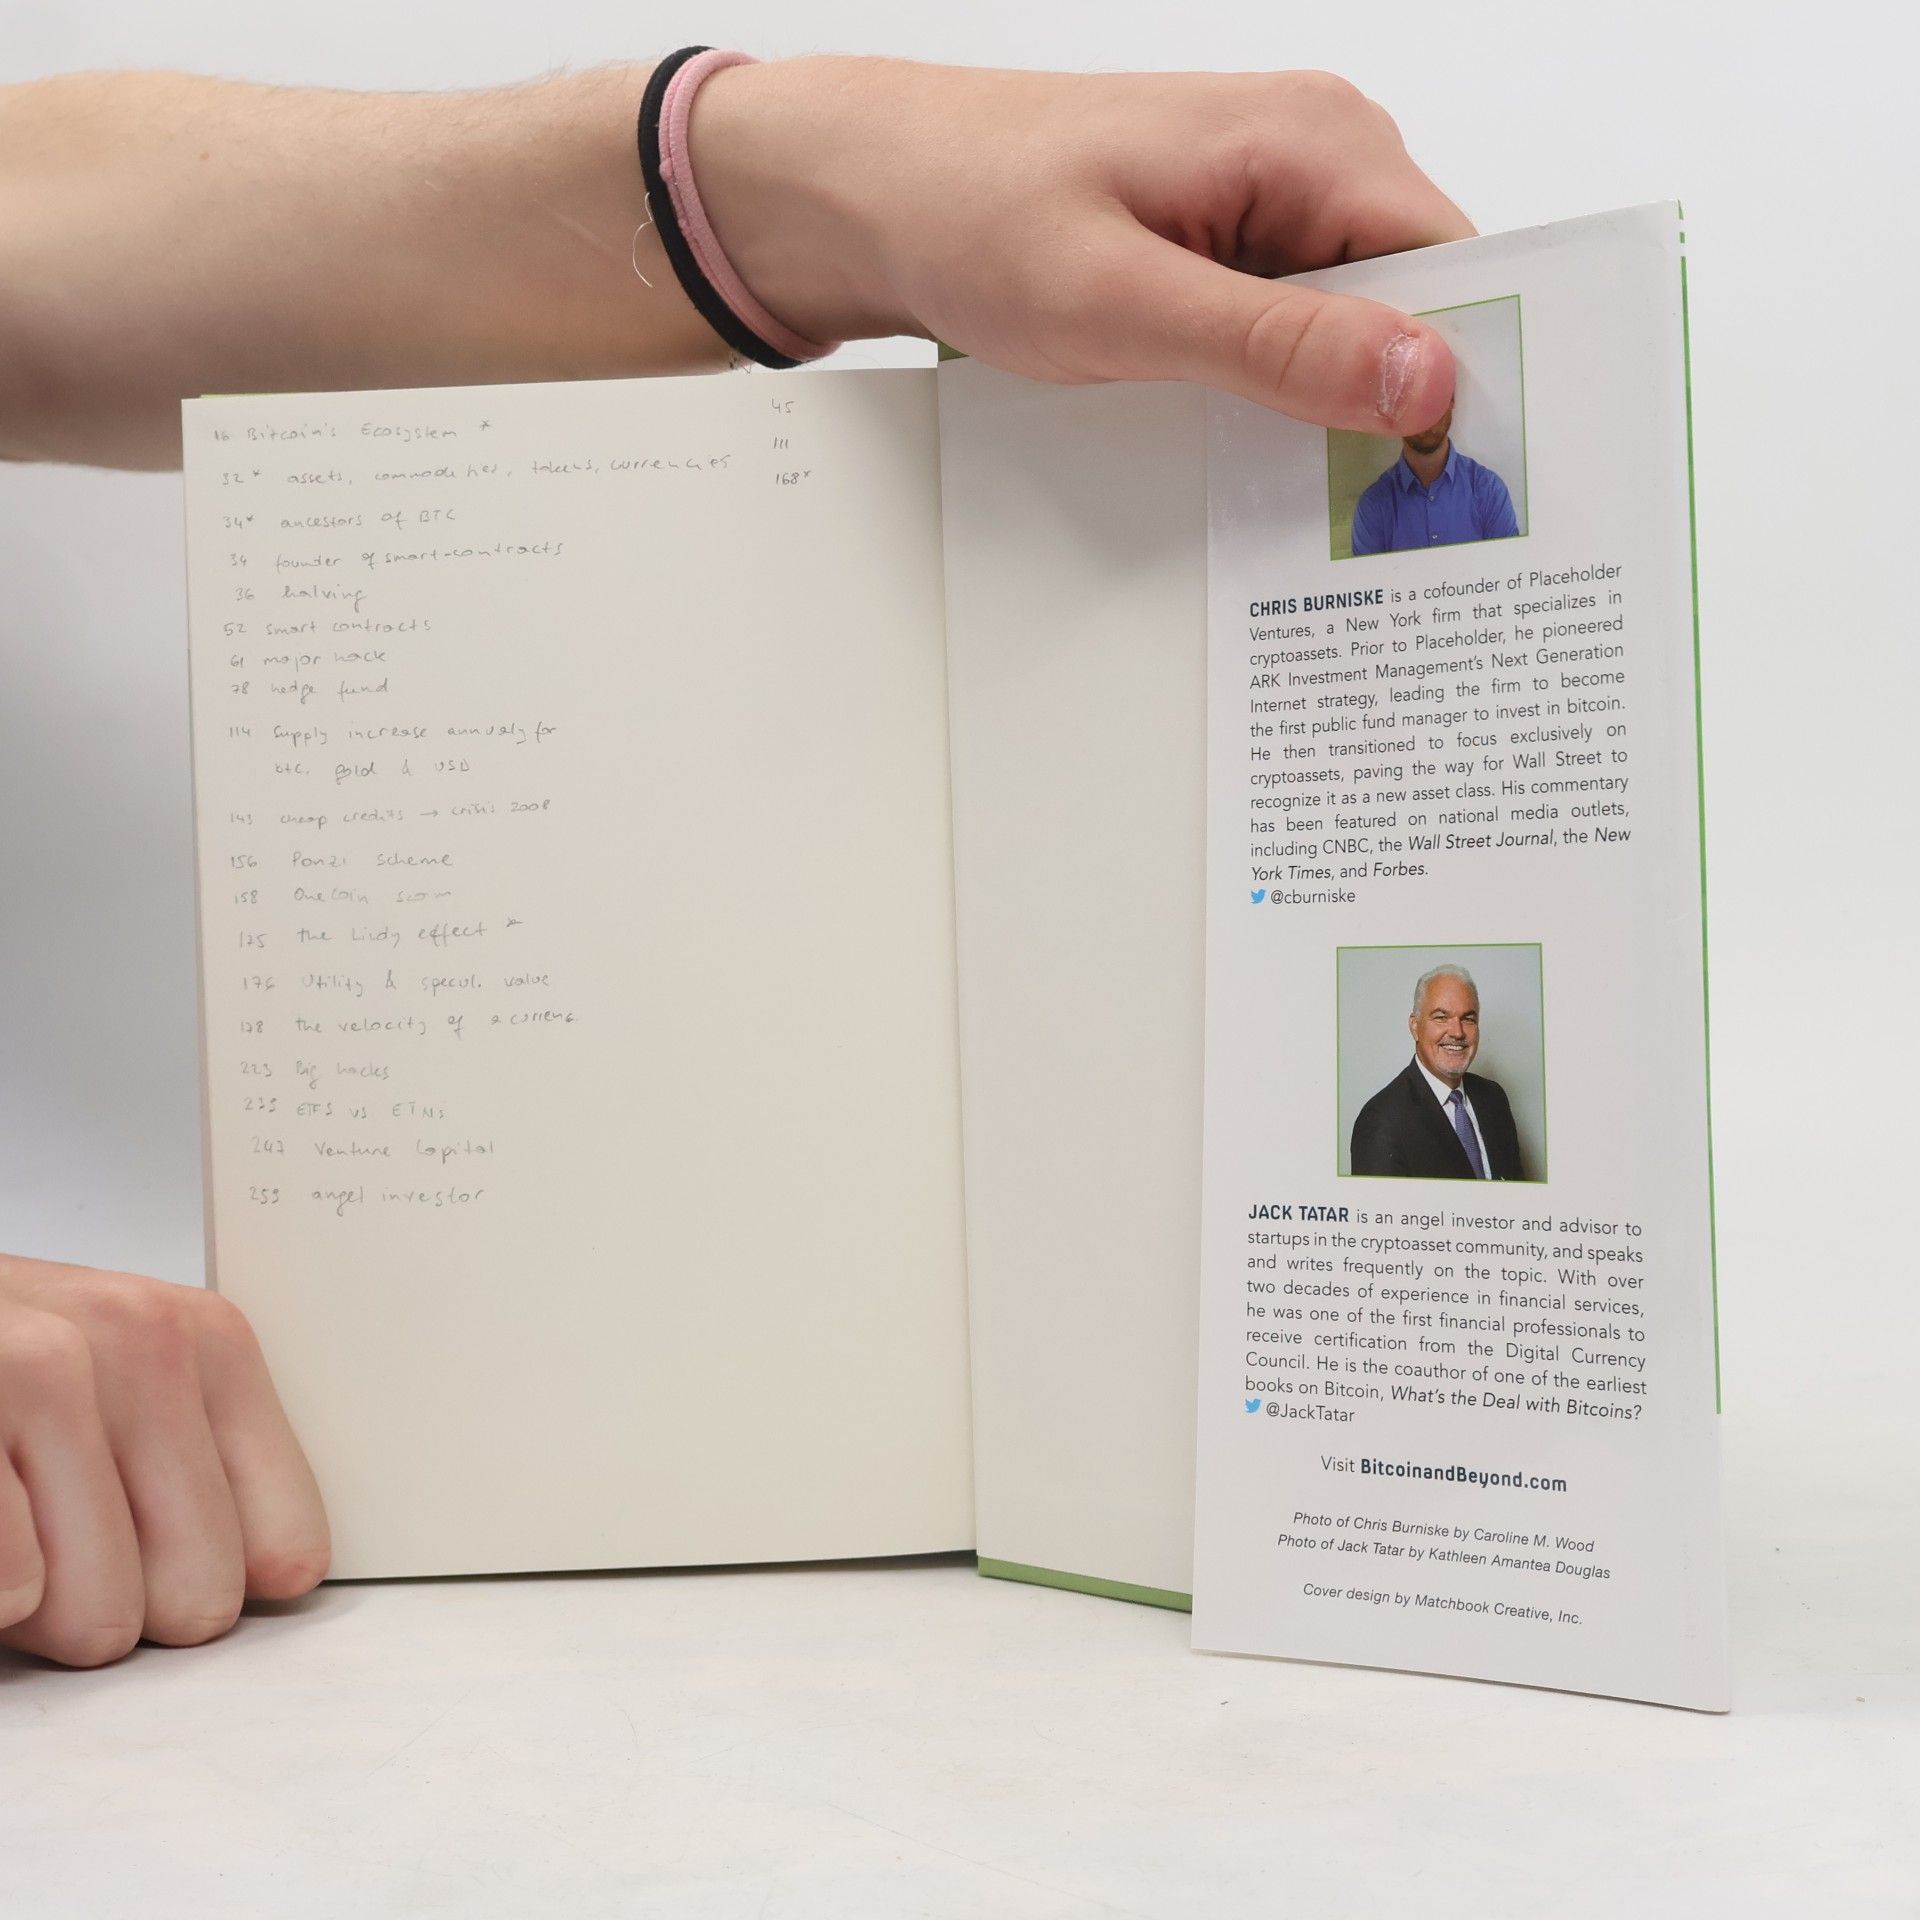 16 Bitcoin's Ecosystem *
32* assets, commodities, tokens, currencies
34* ancestors of BTC
34 founder of smart-contracts
36 halving
52 smart contracts
61 major hack
78 hedge fund
114 Supply increase annualy for
btc, gold & USD
143 cheap credits → crisis 2008
156 Ponzi scheme
158 OneCoin scam
175 the Lindy effect *
176 Utility & specul. value
178 the velocity of a currenc.
223 Big hacks
239 ETFS vs ETNs
247 Venture Capital
259 angel investor
45
111
168*
CHRIS BURNISKE is a cofounder of Placeholder
Ventures, a New York firm that specializes in
cryptoassets. Prior to Placeholder, he pioneered
ARK Investment Management's Next Generation
Internet strategy, leading the firm to become
the first public fund manager to invest in bitcoin.
He then transitioned to focus exclusively on
cryptoassets, paving the way for Wall Street to
recognize it as a new asset class. His commentary
has been featured on national media outlets,
including CNBC, the Wall Street Journal, the New
York Times, and Forbes.
@cburniske
JACK TATAR is an angel investor and advisor to
startups in the cryptoasset community, and speaks
and writes frequently on the topic. With over
two decades of experience in financial services,
he was one of the first financial professionals to
receive certification from the Digital Currency
Council. He is the coauthor of one of the earliest
books on Bitcoin, What's the Deal with Bitcoins?
@JackTatar
Visit BitcoinandBeyond.com
Photo of Chris Burniske by Caroline M. Wood
Photo of Jack Tatar by Kathleen Amantea Douglas
Cover design by Matchbook Creative, Inc.